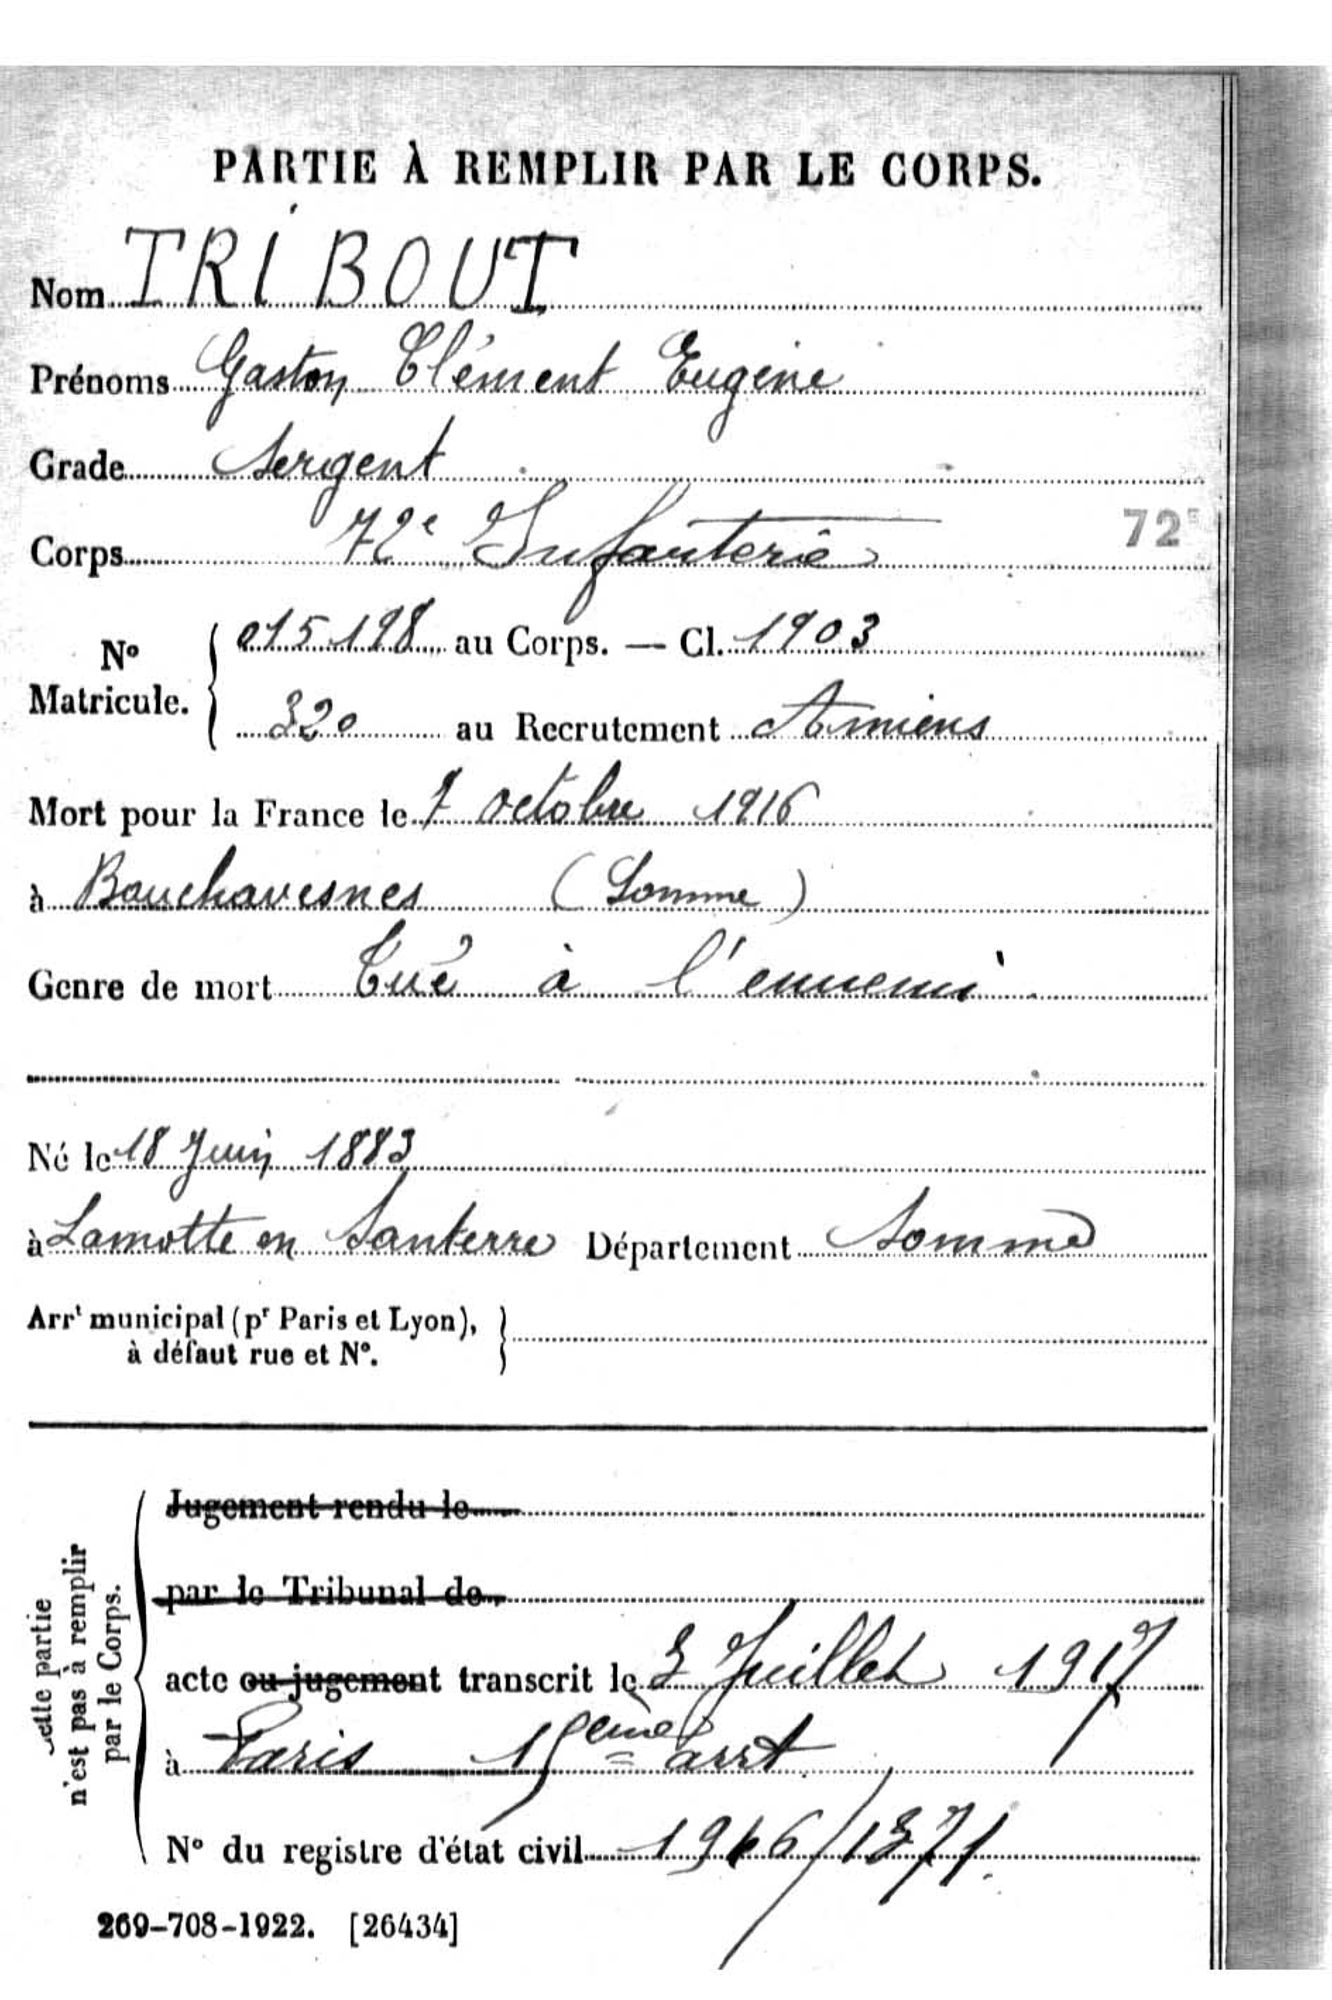 PARTIE À REMPLIR PAR LE CORPS.
Nom TRIBOUT
Prénoms Gaston Clément Eugène
Grade Sergent
Corps 72e Infanterie 72E
No Matricule. 015198 au Corps. — Cl. 1903
320 au Recrutement Amiens
Mort pour la France le 7 octobre 1916
à Bouchavesnes (Somme)
Genre de mort Tué à l'ennemi
Né le 18 Juin 1883
à Lamotte en Santerre Département Somme
Arrt municipal (pr Paris et Lyon),
à défaut rue et No.
Cette partie
n'est pas à remplir
par le Corps.
Jugement rendu le
par le Tribunal de
acte ou jugement transcrit le Juillet 1917
à Paris 15eme arrt
No du registre d'état civil
269-708-1922. [26434]